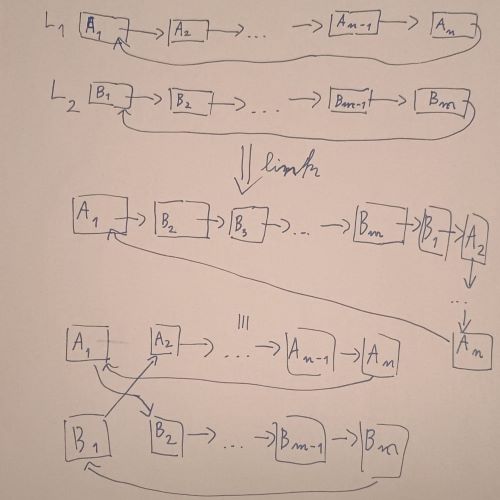 L₁ A₁ → A₂ → ... → Aₙ₋₁ → Aₙ
L₂ B₁ → B₂ → ... → Bₘ₋₁ → Bₘ
⇓ link
A₁ → B₂ → B₃ → ... → Bₘ → B₁ → A₂
↓
...
↓
Aₙ
≡
A₁ A₂ → ... → Aₙ₋₁ → Aₙ
B₁ B₂ → ... → Bₘ₋₁ → Bₘ